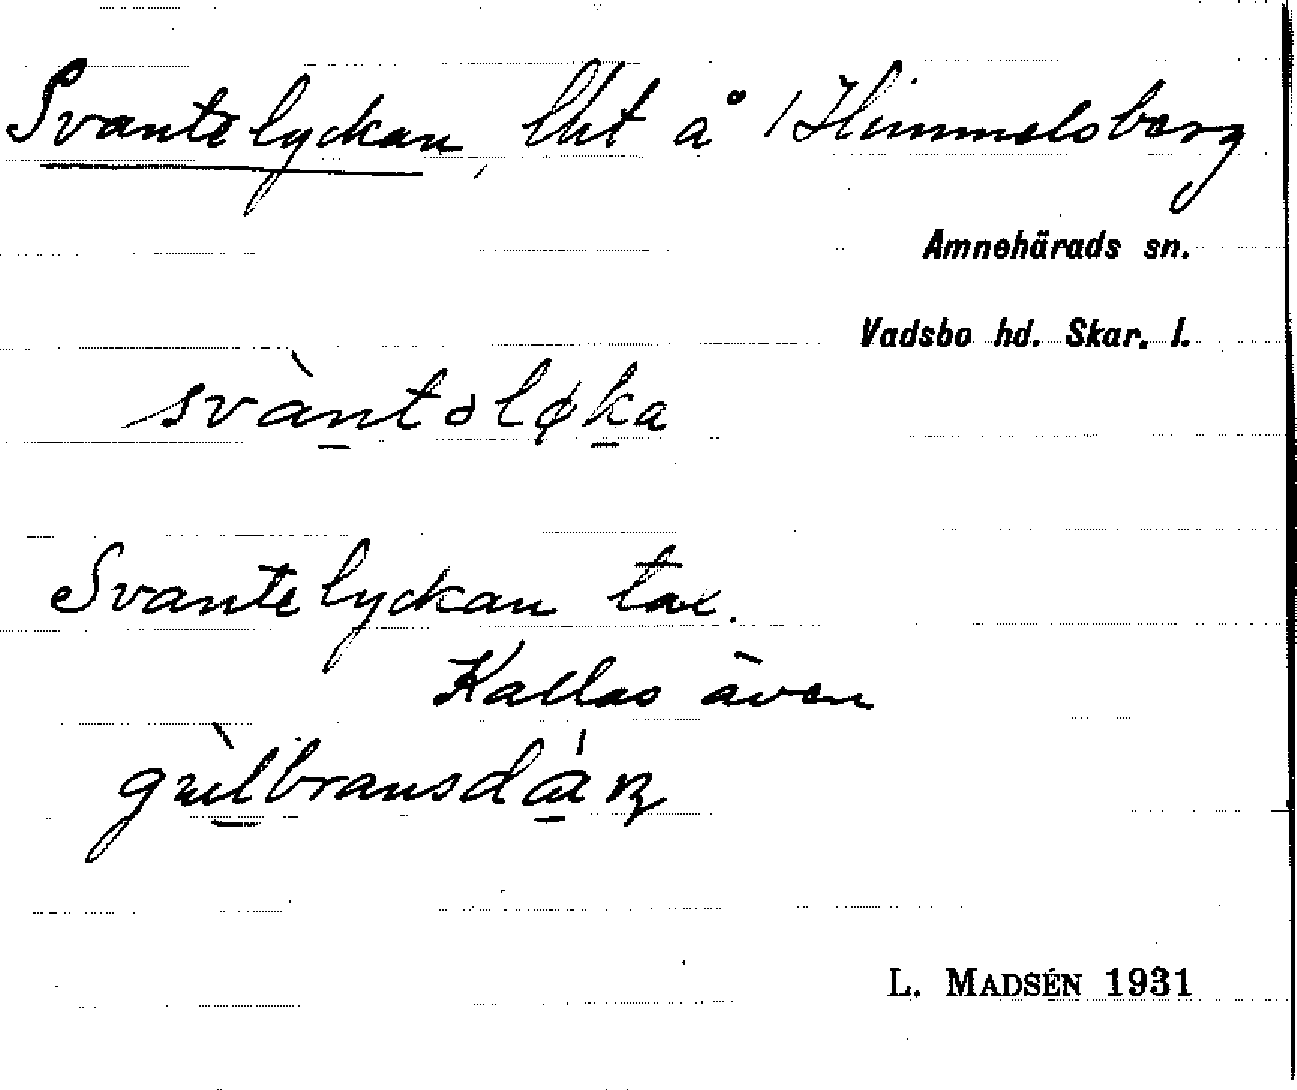 Svantelyckan, lht å 1 Himmelsberg
Amnehärads sn.
Vadsbo hd. Skar. l.
svàntəløka
Svantelyckan tax.
Kallas även
gùlbransdáɴ
L. MADSÉN 1931